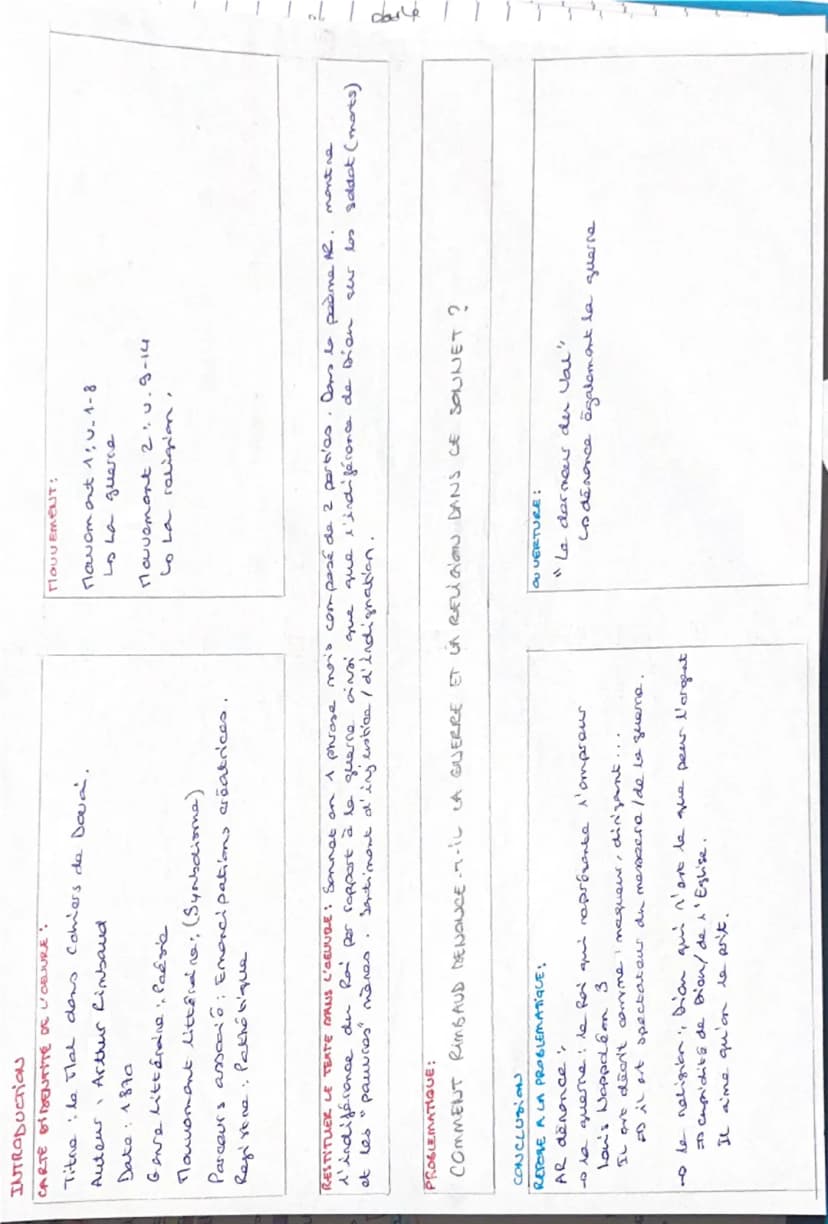 INTRODUCTION
CARTE D'IDENTITÉ DE L'OEUVRE :
Titre : le Mal dans Cahiers de Douai.
Auteur : Arthur Rimbaud
Date : 1870
Genre littéraire : Poésie
Mouvement littéraire : (Symbolisme)
Parcours associé : Emancipations créatrices.
Registre : Pathétique
MOUVEMENT :
Mouvement 1 : v. 1-8
↳ La guerre
Mouvement 2 : v. 9-14
↳ La religion.
RESTITUER LE TEXTE DANS L'OEUVRE : Sonnet en 1 phrase mais composé de 2 parties. Dans le poème AR. montre
l'indiférence du Roi par rapport à la guerre ainsi que l'indiférence de Dieu sur les soldat (morts)
et les "pauvres" mères. Sentiment d'injustice / d'indignation.
PROBLEMATIQUE :
COMMENT RIMBAUD DENONCE-T-IL LA GUERRE ET LA RELIGION DANS CE SONNET ?
CONCLUSION
REPONSE A LA PROBLEMATIQUE :
AR dénonce :
→ la guerre : le Roi qui représente l'empreur
Louis Nappoléon 3
Il est décrit comme : moqueur, dirigant...
⇒ il est spectateur du massacre / de la guerre.
→ la religion : Dieu qui n'est là que pour l'argent
⇒ cupidité de Dieu / de l'Eglise.
Il aime qu'on le prit.
OUVERTURE :
"Le dormeur du Val"
↳ dénonce également la guerre